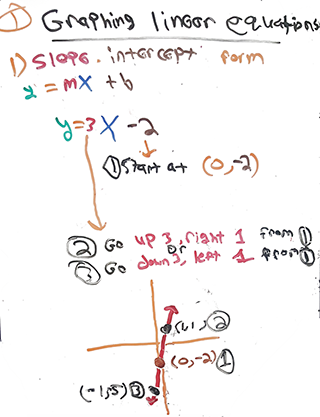 ① Graphing linear equations
1) Slope-intercept form
y = mx + b
y = 3x - 2
① Start at (0,-2)
② Go up 3, right 1 from ①
or
③ Go down 3, left 1 from ①
(1,1) ②
(0,-2) ①
(-1,-5) ③